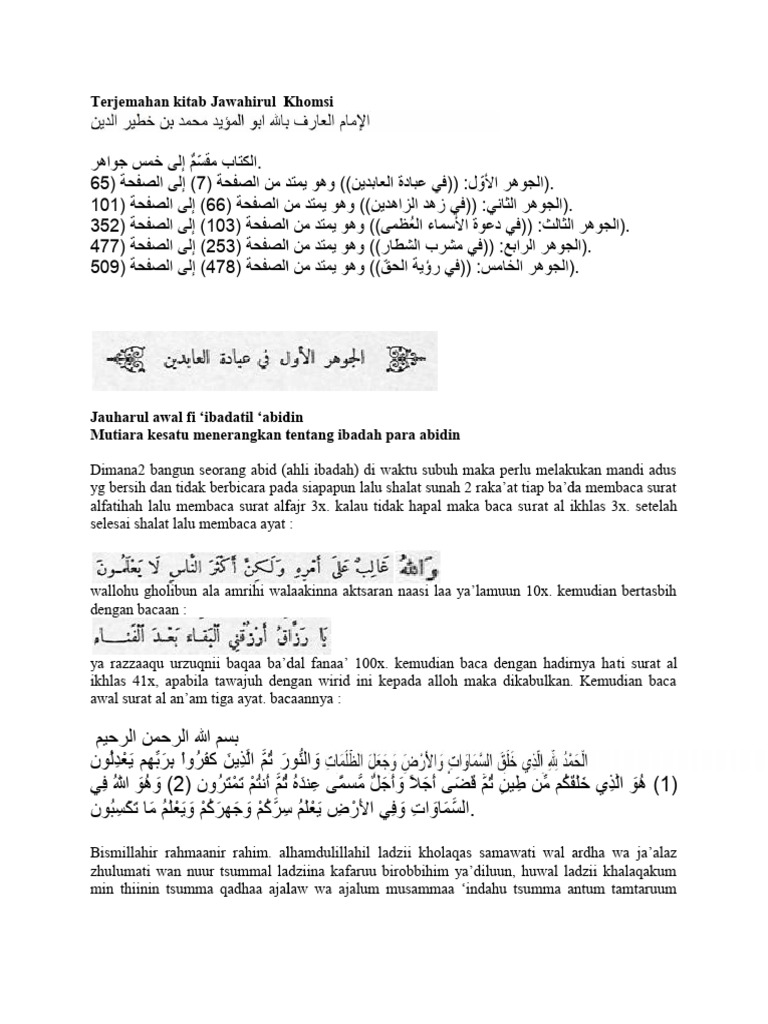 Terjemahan kitab Jawahirul  Khomsi
الإمام العارف بالله ابو المؤيد محمد بن خطير الدين
الكتاب مقسّمٌ إلى خمس جواهر.
الجوهر الأوّل: ((في عبادة العابدين)) وهو يمتد من الصفحة (7) إلى الصفحة (65).
الجوهر الثاني: ((في زهد الزاهدين)) وهو يمتد من الصفحة (66) إلى الصفحة (101).
الجوهر الثالث: ((في دعوة الأسماء العُظمى)) وهو يمتد من الصفحة (103) إلى الصفحة (352).
الجوهر الرابع: ((في مشرب الشطار)) وهو يمتد من الصفحة (253) إلى الصفحة (477).
الجوهر الخامس: ((في رؤية الحقّ)) وهو يمتد من الصفحة (478) إلى الصفحة (509).
الجوهر الأول في عبادة العابدين
Jauharul awal fi ‘ibadatil ‘abidin
Mutiara kesatu menerangkan tentang ibadah para abidin
Dimana2 bangun seorang abid (ahli ibadah) di waktu subuh maka perlu melakukan mandi adus
yg bersih dan tidak berbicara pada siapapun lalu shalat sunah 2 raka’at tiap ba’da membaca surat
alfatihah lalu membaca surat alfajr 3x. kalau tidak hapal maka baca surat al ikhlas 3x. setelah
selesai shalat lalu membaca ayat :
وَاللهُ غَالِبٌ عَلَى أَمْرِهِ وَلَكِنَّ أَكْثَرَ النَّاسِ لَا يَعْلَمُونَ
wallohu gholibun ala amrihi walaakinna aktsaran naasi laa ya’lamuun 10x. kemudian bertasbih
dengan bacaan :
يَا رَزَّاقُ اُرْزُقْنِي الْبَقَاءَ بَعْدَ الْفَنَاءِ
ya razzaaqu urzuqnii baqaa ba’dal fanaa’ 100x. kemudian baca dengan hadirnya hati surat al
ikhlas 41x, apabila tawajuh dengan wirid ini kepada alloh maka dikabulkan. Kemudian baca
awal surat al an’am tiga ayat. bacaannya :
بسم الله الرحمن الرحيم
الْحَمْدُ لِلَّهِ الَّذِي خَلَقَ السَّمَاوَاتِ وَالأَرْضَ وَجَعَلَ الظُّلُمَاتِ وَالنُّورَ ثُمَّ الَّذِينَ كَفَرُواْ بِرَبِّهِم يَعْدِلُونَ
(1) هُوَ الَّذِي خَلَقَكُم مِّن طِينٍ ثُمَّ قَضَى أَجَلاً وَأَجَلٌ مُّسمًّى عِندَهُ ثُمَّ أَنتُمْ تَمْتَرُونَ (2) وَهُوَ اللهُ فِي
السَّمَاوَاتِ وَفِي الأَرْضِ يَعْلَمُ سِرَّكُمْ وَجَهرَكُمْ وَيَعْلَمُ مَا تَكْسِبُونَ.
Bismillahir rahmaanir rahim. alhamdulillahil ladzii kholaqas samawati wal ardha wa ja’alaz
zhulumati wan nuur tsummal ladziina kafaruu birobbihim ya’diluun, huwal ladzii khalaqakum
min thiinin tsumma qadhaa ajalaw wa ajalum musammaa ‘indahu tsumma antum tamtaruum